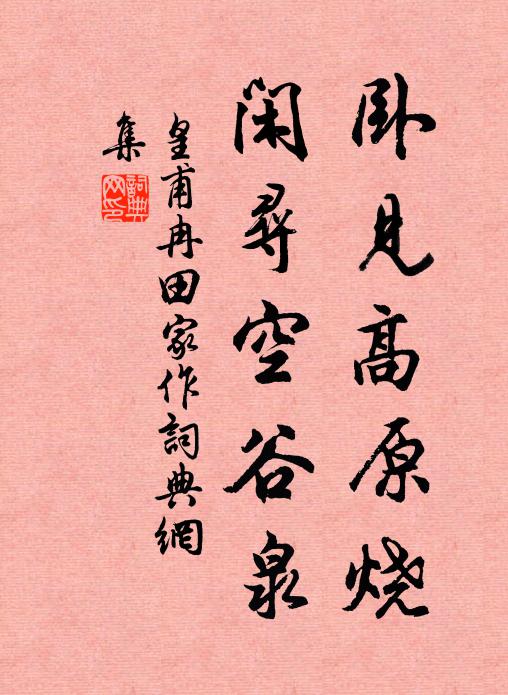 卧见高原烧
闲寻空谷泉
皇甫冉田家作詞典網
集
詞典网印